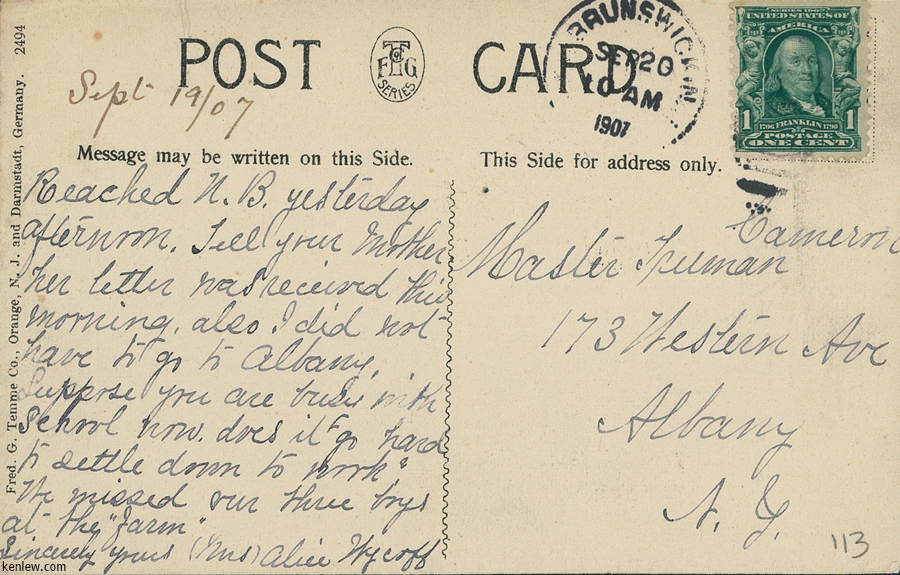 Fred. G. Temme Co., Orange, N. J. and Darmstadt, Germany. 2494
POST CARD
F T G Co
SERIES
Sept 19/07
BRUNSWICK, N.J.
SEP 20
10 AM
1907
SERIES 1902
UNITED STATES OF
AMERICA
1 1
1706 FRANKLIN 1790
POSTAGE
ONE CENT
Message may be written on this Side.
Reached N. B. yesterday
afternoon. Tell your Mother
her letter was received this
morning. also I did not
have to go to Albany.
Suppose you are busy with
School now. does it go hard
to settle down to work?
We missed our three boys
at the "farm".
Sincerely yours (Mrs) Alice Wycoff
This Side for address only.
Master Truman Cameron
173 Western Ave
Albany
N. Y.
113
kenlew.com